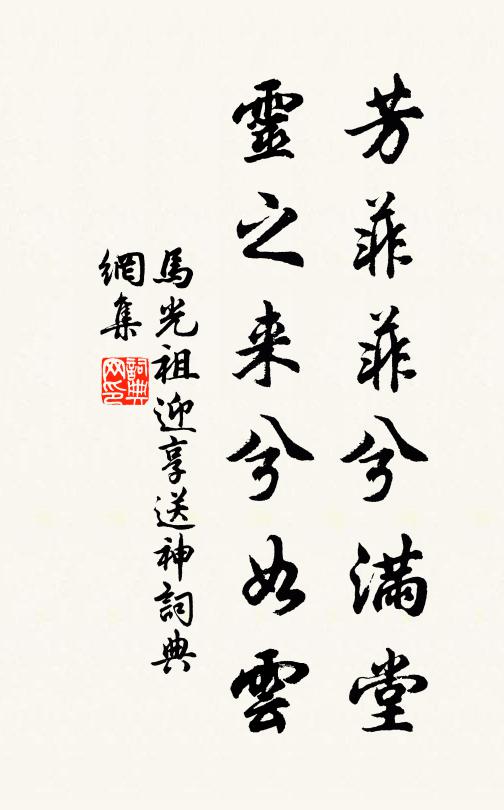 芳菲菲兮滿堂
靈之来兮如雲
馬光祖迎享送神詞典
網集
詞典網印